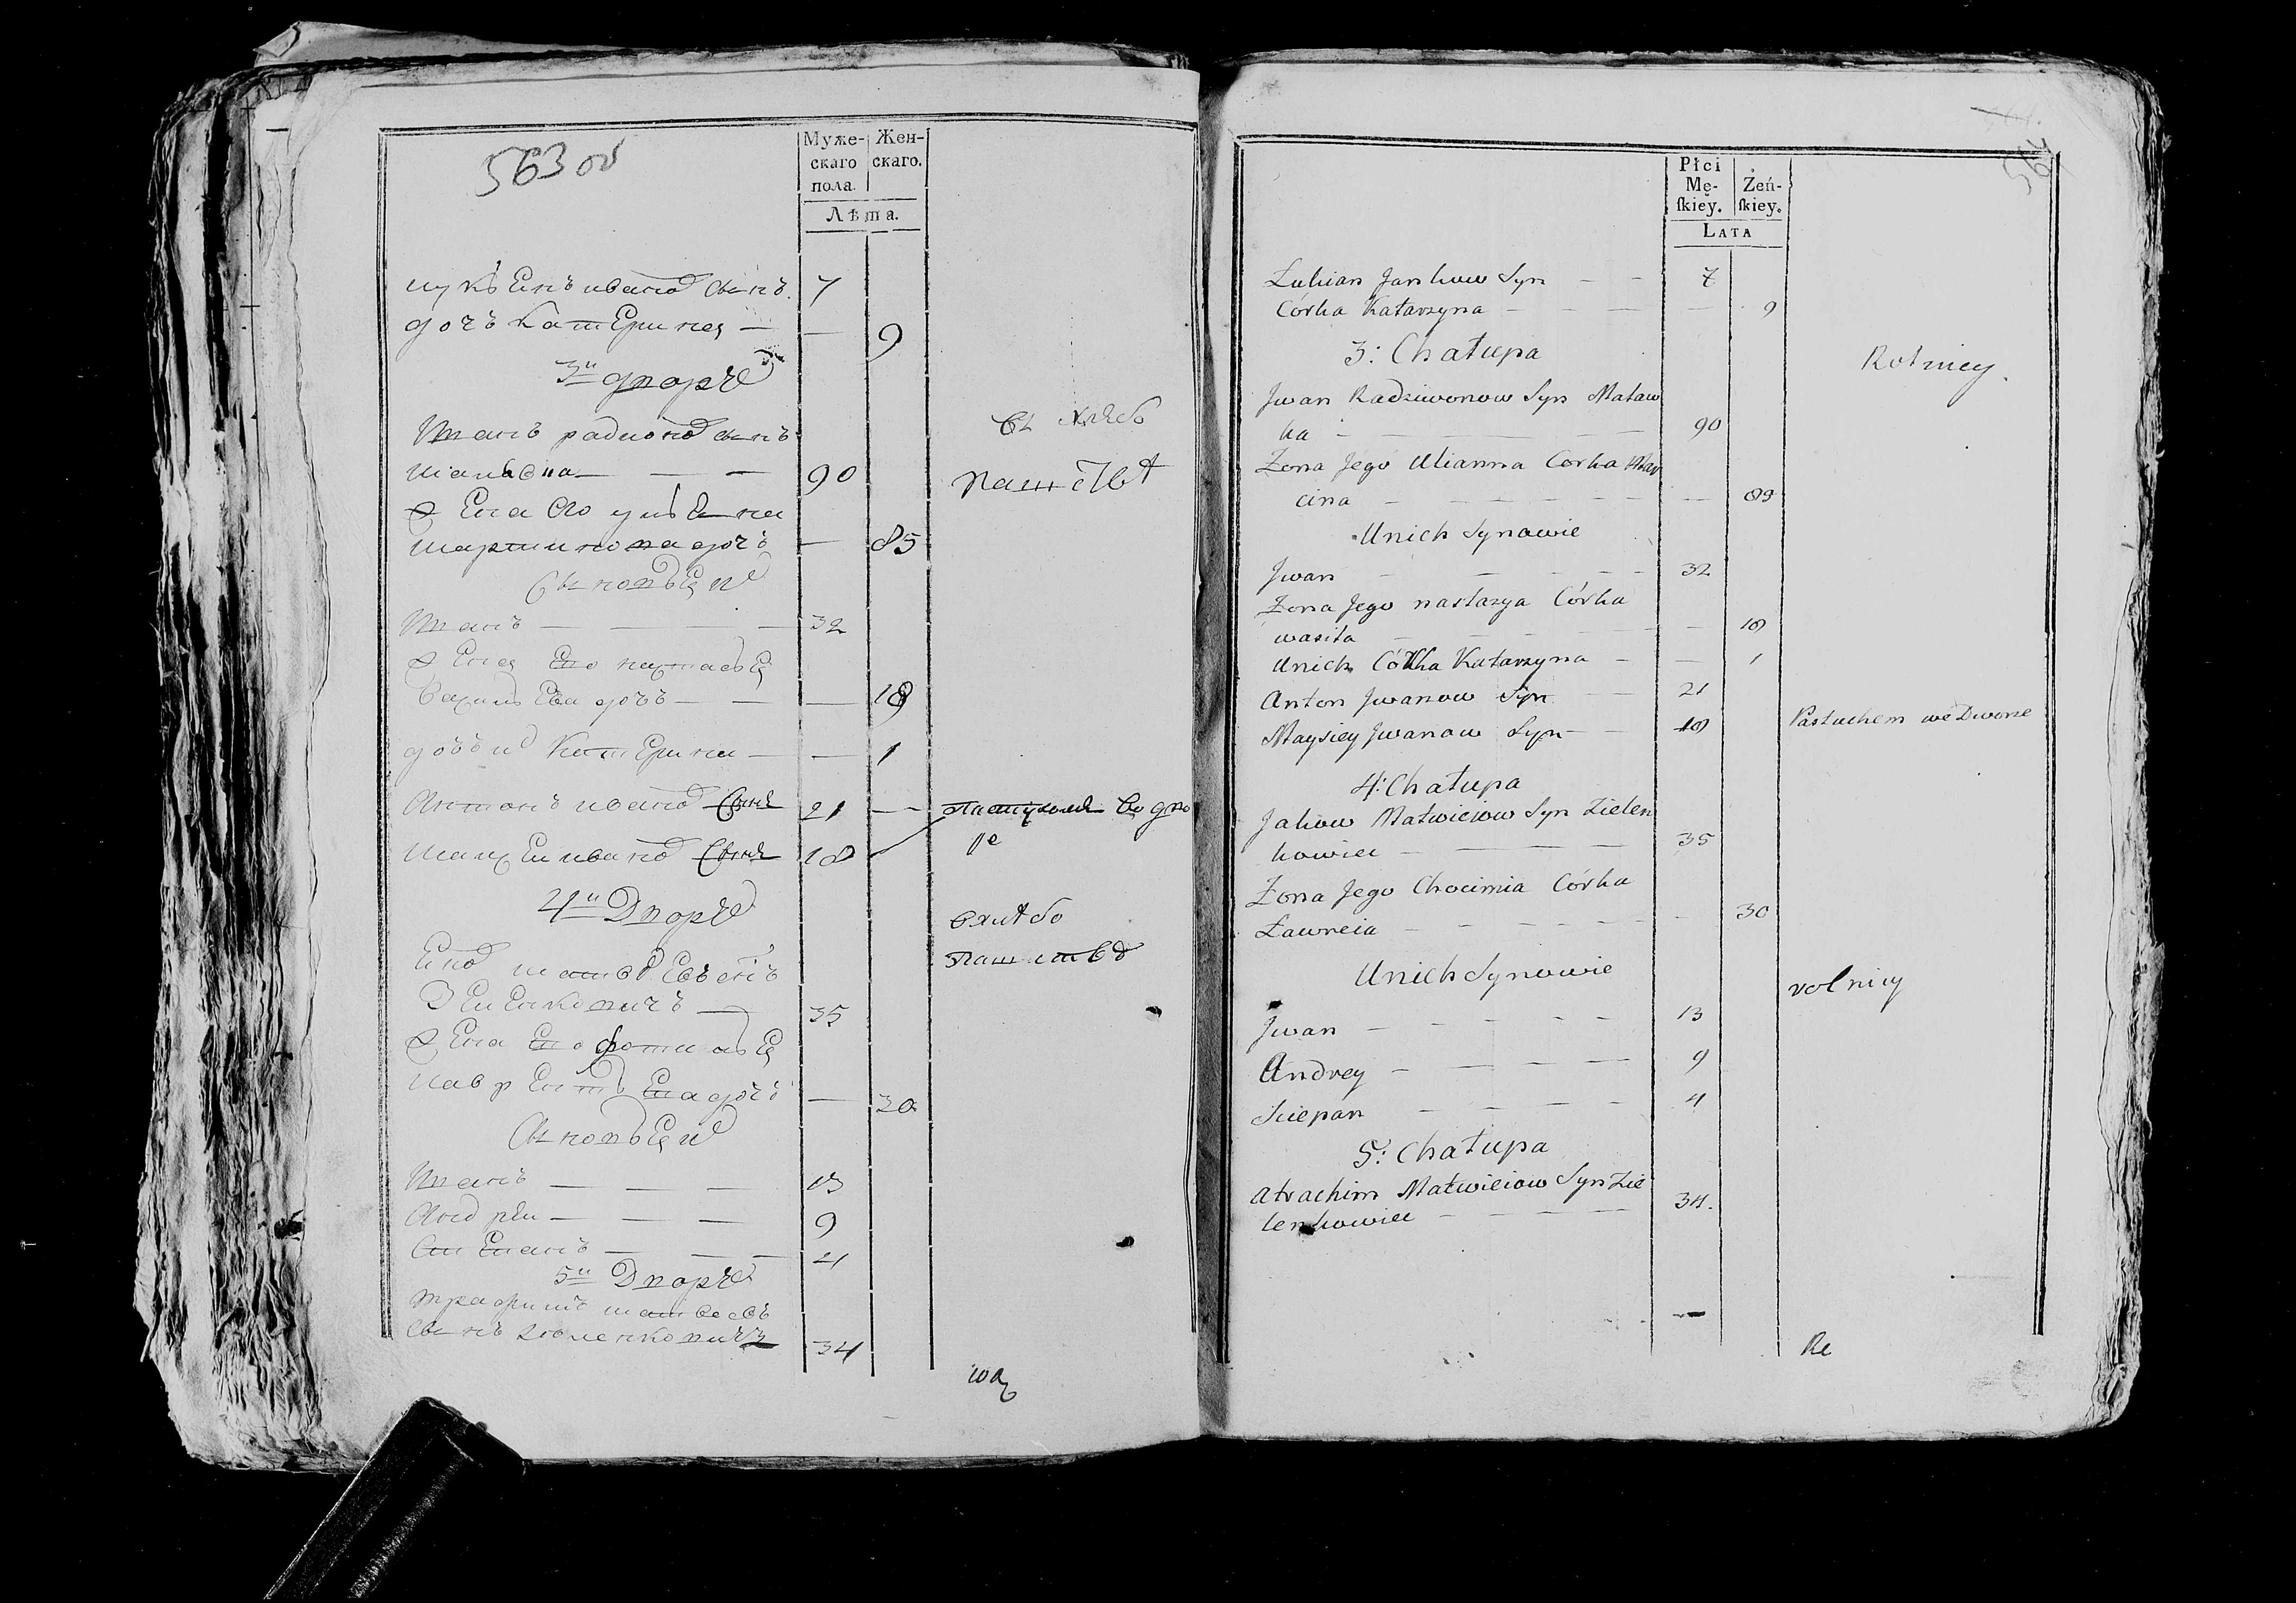 563 об
Муже-
скаго
пола.
Жен-
скаго.
Лѣта.
лукъенъ иванов сынъ. 7
дочъ катерина — — 9
3й дворъ
Иванъ радионов сынъ
90
Жена его ульена
мартинова дочъ — 85
Сыновья их
Иванъ — — — 32
Жена его настасья
василева дочъ — — — 18
дочъ их катерина — — 1
Антонъ иванов сынъ 21 — пастухомъ во дво
ре
иванов сынъ 18
4й Дворъ
хлебо
пашество
Яков матвеевъ сынъ
Зеленковичъ — 35
Жена его фотинья
дочъ — 30
Сыновья их
Иванъ — — — 13
Андрей — — — 9
Степанъ — — — 4
5й Дворъ
трафимъ матвеевъ
сынъ Зеленковичъ 34
564
Płci
Mę-
ſkiey.
Żeń-
ſkiey.
LATA
Łukian Jankow Syn — — 7
Córka Katarzyna — — — — 9
3: Chałupa
Rolnicy.
Jwan Radziwonow Syn Maław
ka — — — — 90
Żona Jego Ulianna Corka Mar
cina — — — — — — 89
Unich Synowie
Jwan — — — — 32
Żona Jego nastazya Córka
wasila — — — — — 18
Unich Córka Katarzyna — — 1
Anton Jwanow Syn — — 21
Maysiey Jwanow Syn — — 18 Pastuchem we Dworze
4: Chałupa
Jakow Matwieiow Syn Zielen
kowicz — — — — 35
Żona Jego Chocimia Córka
Ławreia — — — — — 30
Unich Synowie
rolnicy
Jwan — — — — 13
Andrey — — — — 9
Sciepan — — — — 4
5: Chałupa
Atrachim Matwieiow Syn Zie
lenkowicz — — — — 34.
Re